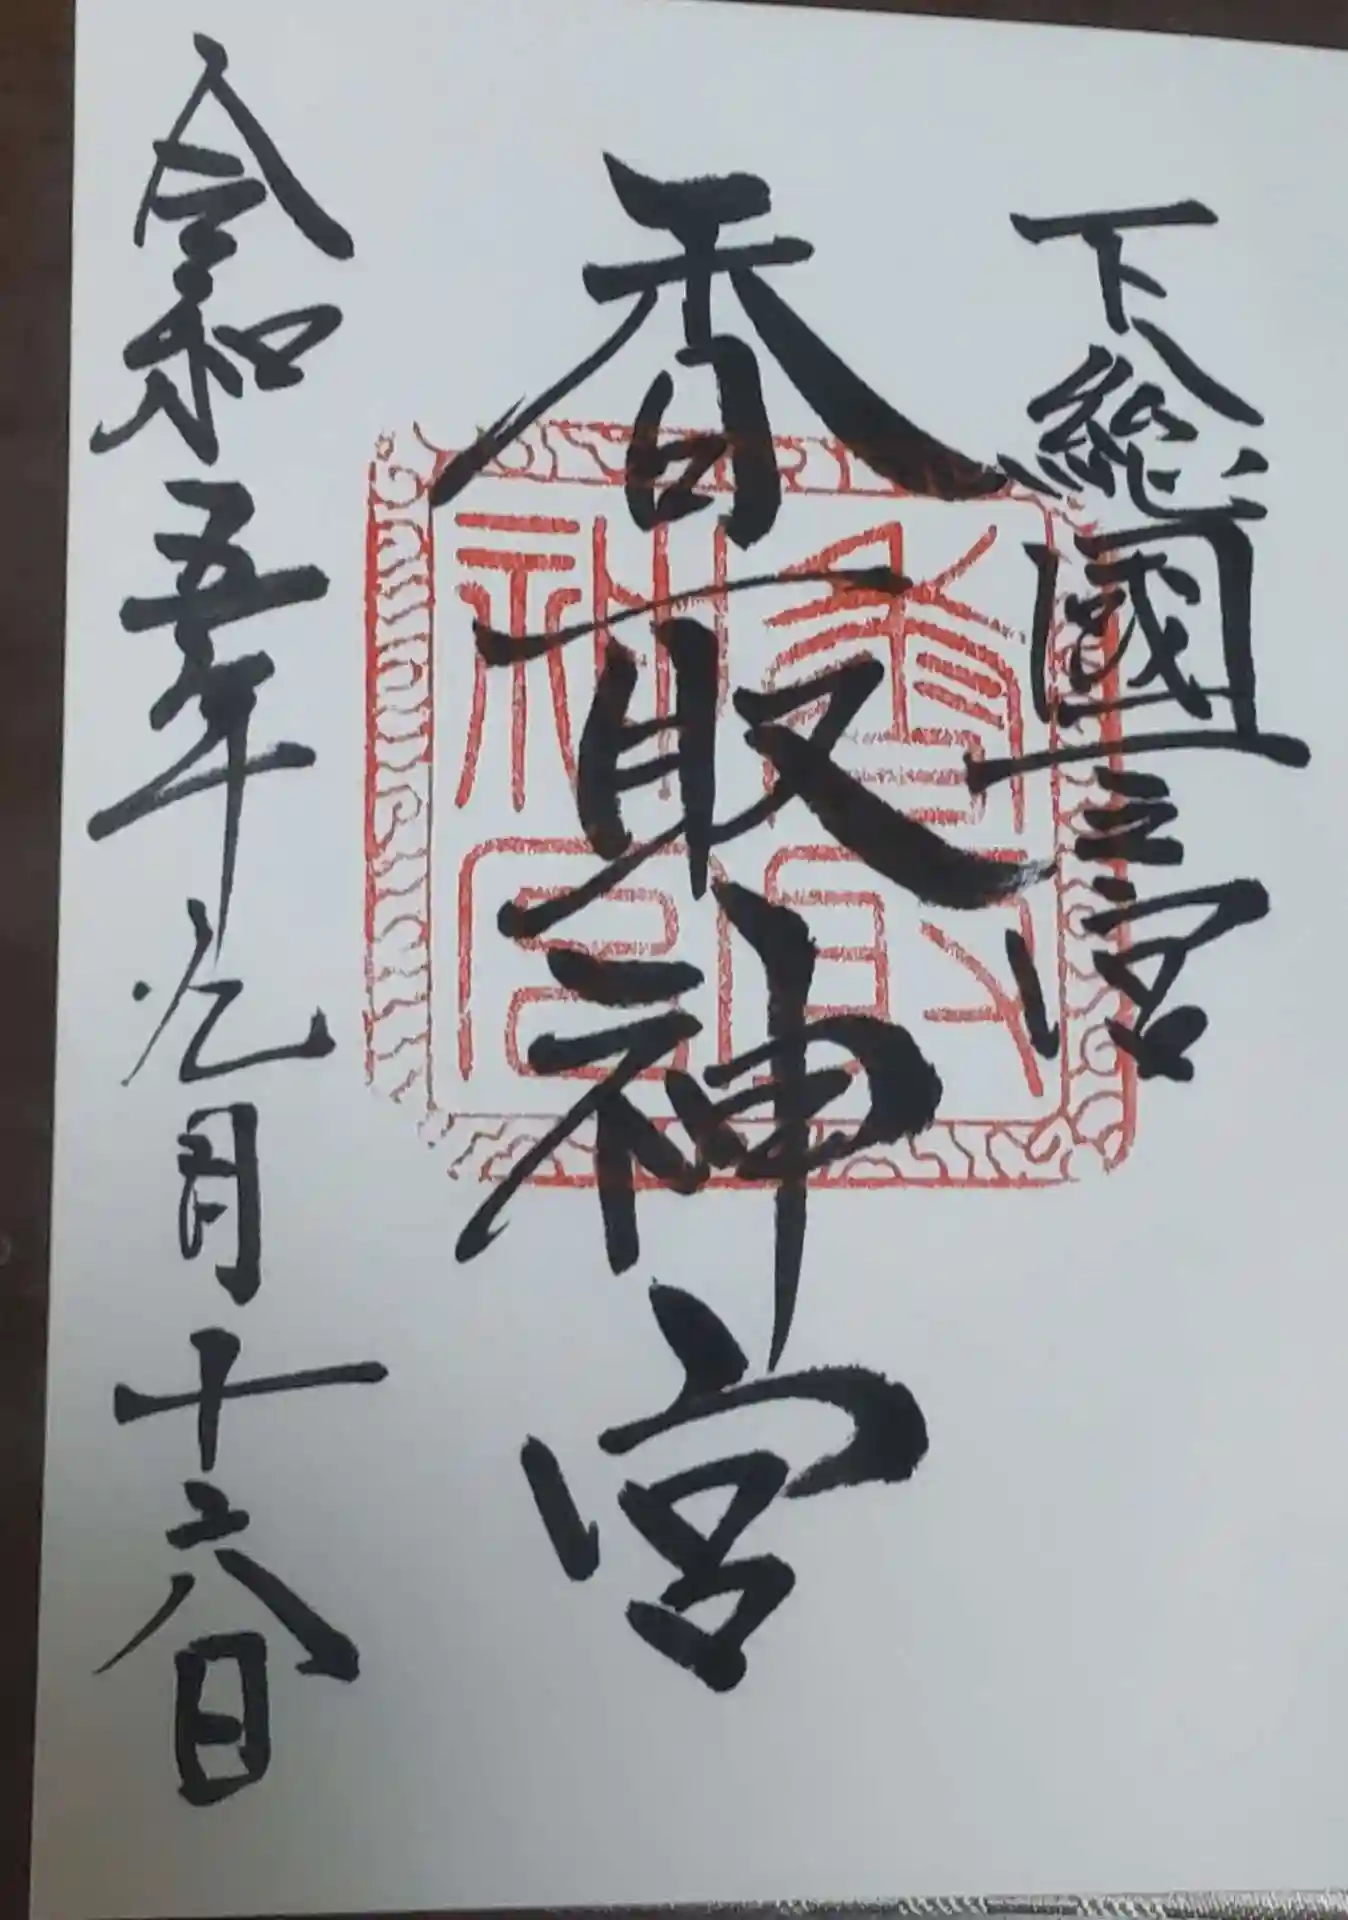 下総國一宮
香取神宮
香取神宮
令和五年九月十六日